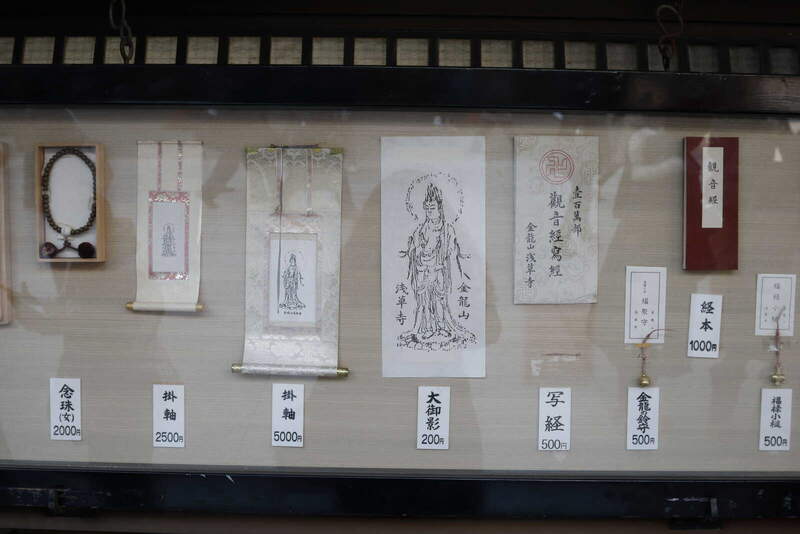 金龍山
浅草寺
壹百萬部
觀音經寫經
金龍山 浅草寺
觀音經
念珠
(女)
2000円
掛軸
2500円
掛軸
5000円
大御影
200円
写経
500円
金龍の鈴守
500円
経本
1000円
福禄小槌
500円